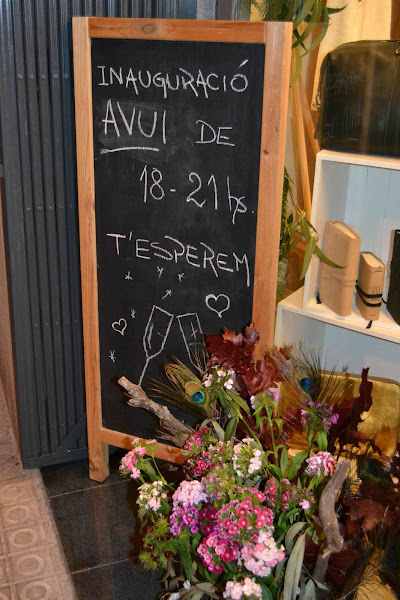 INAUGURACIÓ
AVUI DE
18-21 hs.
T'ESPEREM